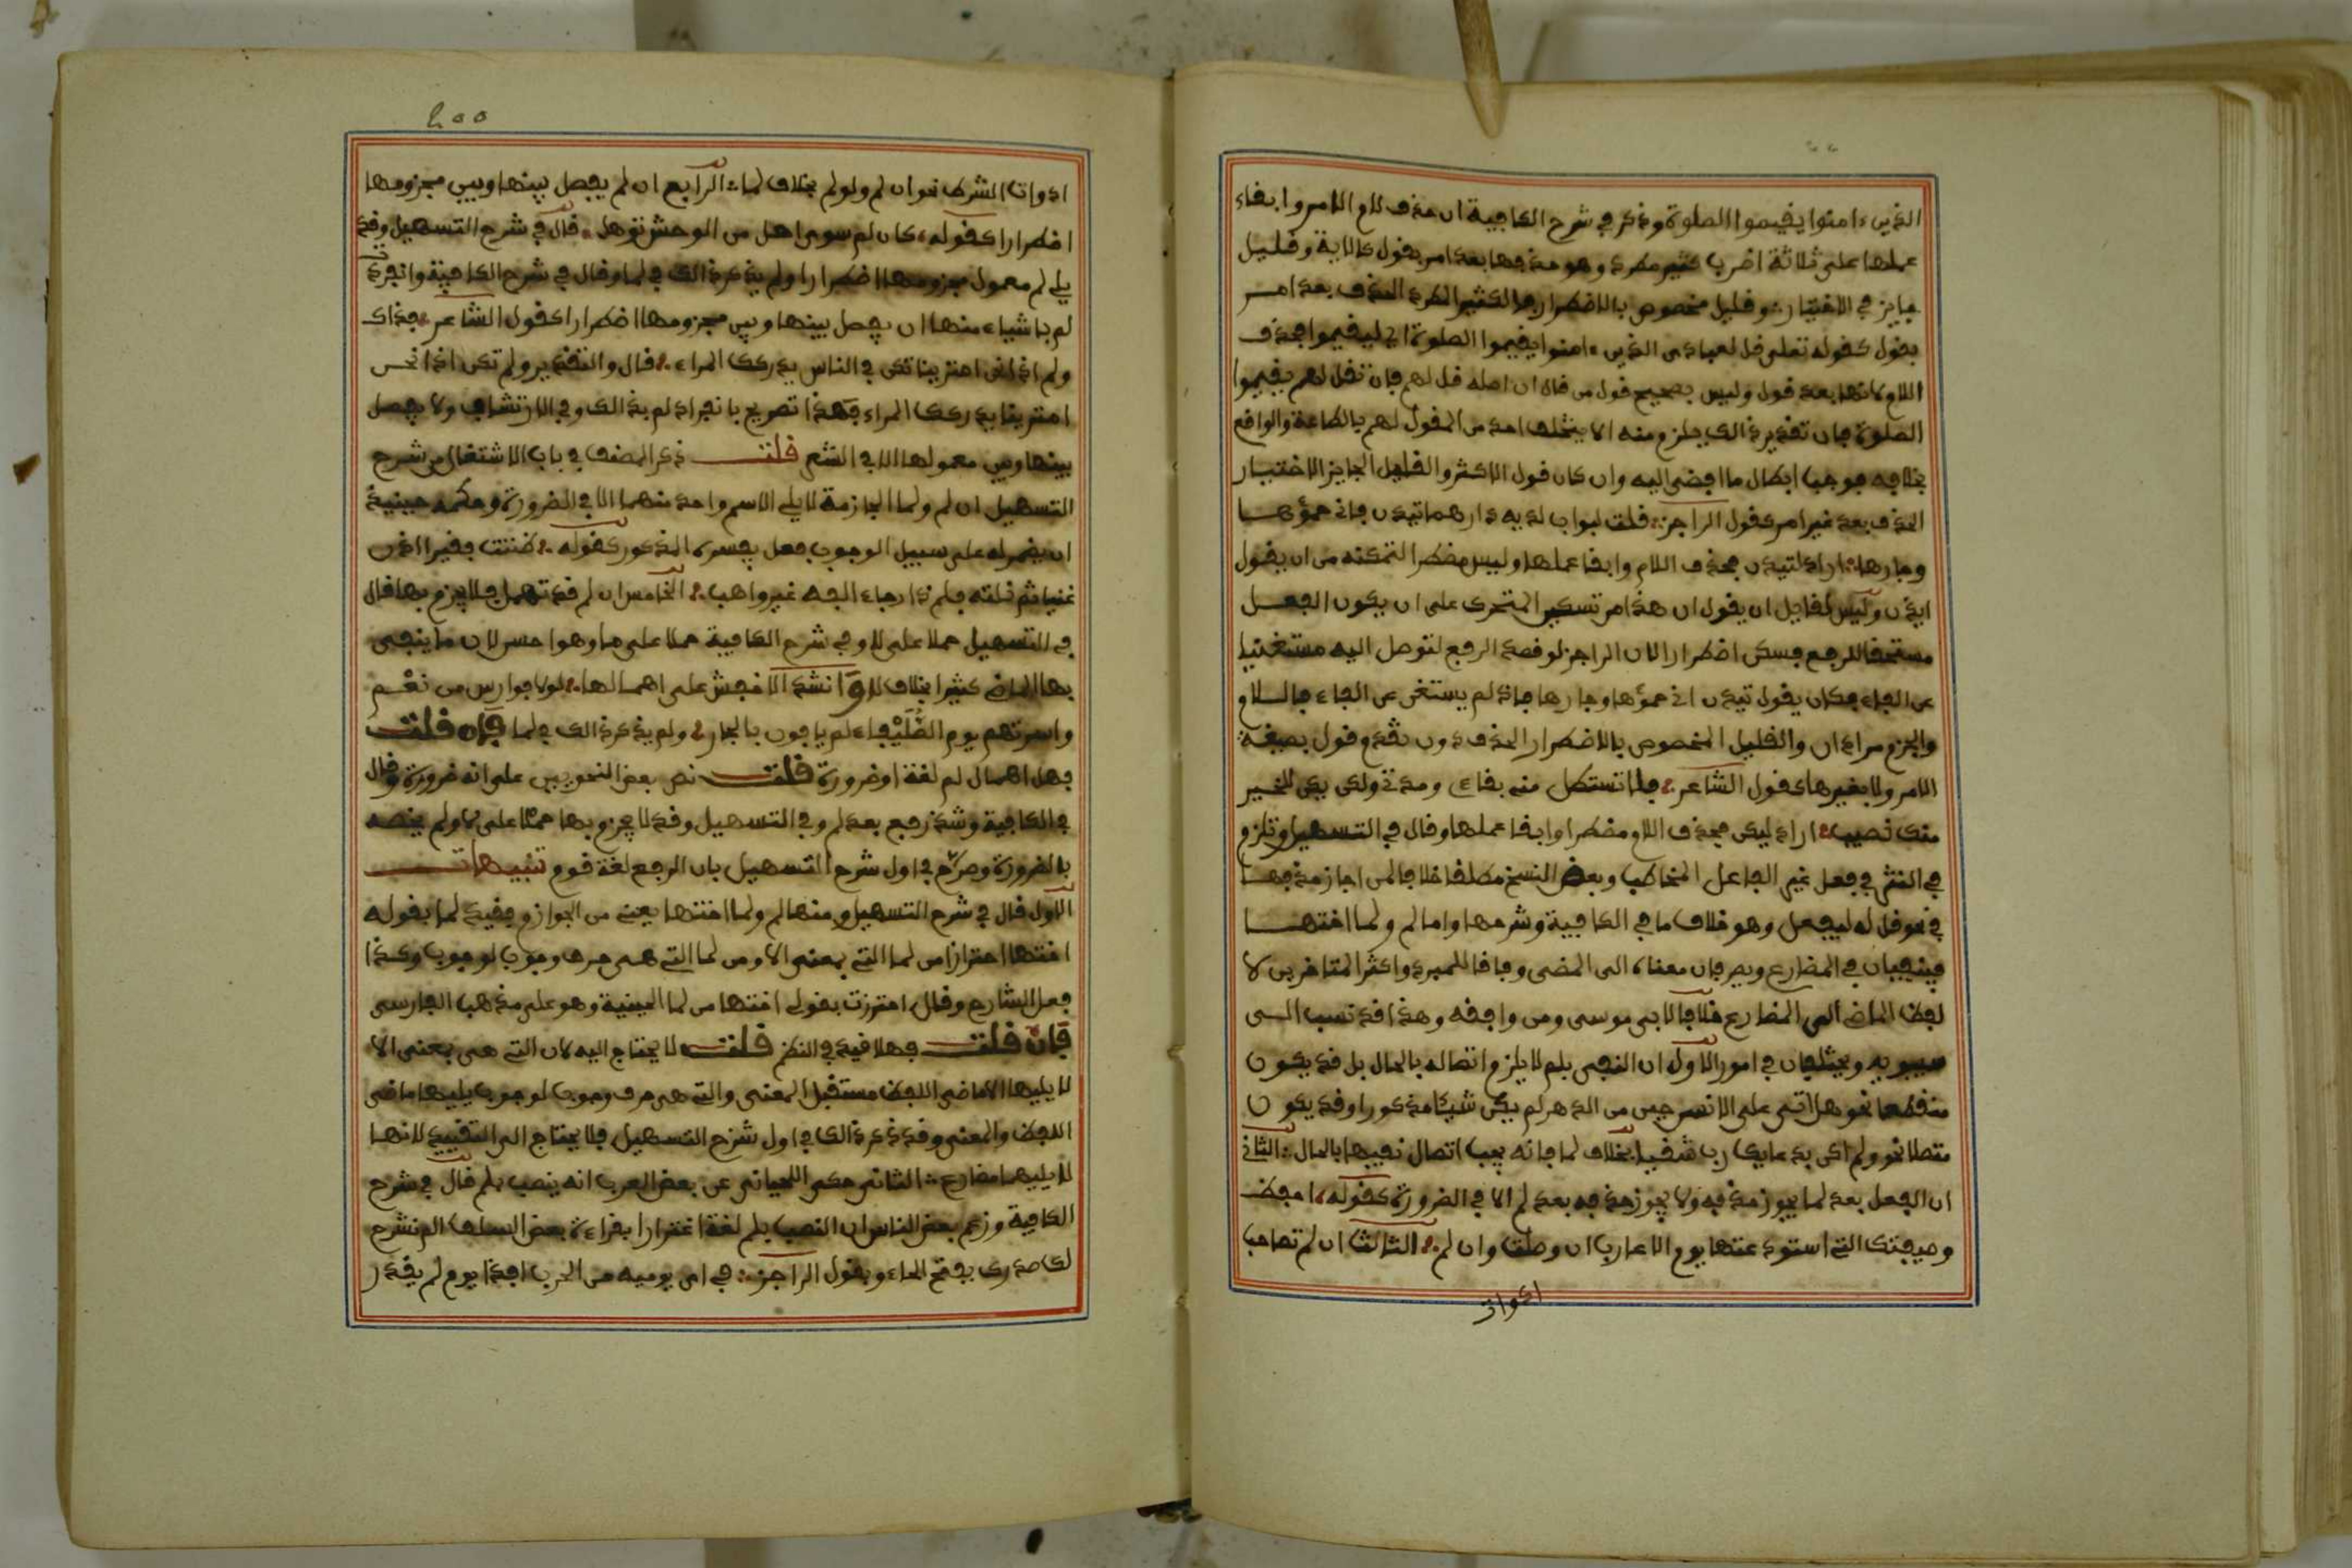 الذين ءامنوا يقيموا الصلوة وذكر في شرح الكافية ان حذف لام الامر وابقاء
عملها على ثلاثة اضرب كثير مطرد وهو حذفها بعد امر بقول كالاية وقليل
جايز في الاختيار وقليل مخصوص بالاضطرار فالكثير المطرد الحذف بعد امر
بقول كقوله تعلى قل لعبادى الذين ءامنوا يقيموا الصلوة اى ليقيموا فحذف
اللام لانها بعد قول وليس بصحيح قول من قال ان اصله قل لهم فان تقل لهم يقيموا
الصلوة فان تقدير ذالك يلزم منه الا يتخلف احد من المقول لهم بالطاعة والواقع
بخلافه فوجب ابطال ما افضى اليه وان كان قول الاكثر والقليل الجايز الاختيار
الحذف بعد غير امر كقول الراجز قلت لبواب لديه دارها تيذن فانى حمؤها
وجارها اراد لتيذن فحذف اللام وابقا عملها وليس مضطرا لتمكنه من ان يقول
ايذن وليس لقايل ان يقول ان هذا من تسكين المتحرك على ان يكون الفعل
مستحقا للرفع فسكن اضطرارا لان الراجز لو قصد الرفع لتوصل اليه مستغنيا
عن الفاء فكان يقول تيذن انى حمؤها وجارها فاذ لم يستغن عن الفاء فاللام
والجزم مرادان والقليل المخصوص بالاضطرار الحذف دون تقدم قول بصيغة
الامر ولا بغيرها كقول الشاعر فلا تستطل منى بقاءى ومدتى ولكن يكن للخير
منك نصيب اراد ليكن فحذف اللام مضطرا وابقا عملها وقال في التسهيل وتلزم
في النثر في فعل غير الفاعل المخاطب وبعض النسخ مطلقا خلافا لمن اجاز حذفها
في نحو قل له ليفعل وهو خلاف ما في الكافية وشرحها واما لم ولما اختها
فينفيان في المضارع ويصرفان معناه الى المضى وفاقا للمبرد واكثر المتاخرين لا
لفظ الماضى الى المضارع خلافا لابى موسى ومن وافقه وهذا قد نسب الى
سيبويه ويختلفان في امور الاول ان النفى بلم لا يلزم اتصاله بالحال بل قد يكون
منقطعا نحو هل اتى على الانسن حين من الدهر لم يكن شيئا مذكورا وقد يكون
متصلا نحو ولم اكن بدعايك رب شقيا بخلاف لما فانه يجب اتصال نفيها بالحال الثانى
ان الفعل بعد لما يجوز حذفه ولا يجوز حذفه بعد لم الا في الضرورة كقوله احفظ
وديعتك التى استودعتها يوم الاعازب ان وصلت وان لم الثالث ان لم تصاحب
ادوات
٢٥٥
ادوات الشرط نحو ان لم ولو لم بخلاف لما الرابع ان لم يفصل بينها وبين مجزومها
اضطرارا كقوله كان لم سوى اهل من الوحش توهل قال في شرح التسهيل وقد
يلى لم معمول مجزومها اضطرارا ولم يذكر ذالك في لما وقال في شرح الكافية وانفردت
لم باشياء منها ان يفصل بينها وبين مجزومها اضطرارا كقول الشاعر فذاك
ولم اذا نحن امترينا تكن في الناس يدركك المراء قال والتقدير ولم تكن اذا نحن
امترينا يدركك المراء فهذا تصريح بانفراد لم بذالك وفي الارتشاف ولا يفصل
بينها وبين معمولها الا في الشعر قلت ذكر المصنف في باب الاشتغال من شرح
التسهيل ان لم ولما الجازمة لا يلى الاسم واحدة منهما الا في الضرورة وحكمه حينيذ
ان يضمر له على سبيل الوجوب فعل يفسره المذكور كقوله ظننت فقيرا ذا
غنيا ثم نلته فلم ذا رجاء القه غير واهب الخامس ان لم قد تهمل فلا يجزم بها قال
في التسهيل حملا على لا وفي شرح الكافية حملا على ما وهو احسن لان ما ينفى
بها الماضى كثيرا بخلاف لا وانشد الاخفش على اهمالها لولا فوارس من نعم
واسرتهم يوم الصليفاء لم يوفون بالجار ولم يذكر ذالك في لما فان قلت
فهل اهمال لم لغة او ضرورة قلت نص بعض النحويين على انه ضرورة وقال
في الكافية وشذ رفع بعد لم وفي التسهيل وقد لا يجزم بها حملا على لا ولم يخصه
بالضرورة وصرح في اول شرح التسهيل بان الرفع لغة قوم تنبيهات
الاول قال في شرح التسهيل ومنها لم ولما اختها يعنى من الجوازم وقيد لما بقوله
اختها احترازا من لما التى بمعنى الا ومن لما التى هى حرف وجوب لوجوب وكذا
فعل الشارح وقال احترزت بقولى اختها من لما الحينية وهو على مذهب الفارسى
فان قلت فهلا قيد في النظم قلت لا يحتاج اليه لان التى هى بمعنى الا
لا يليها الا ماضى اللفظ مستقبل المعنى والتى هى حرف وجوب لوجوب يليها ماضى
اللفظ والمعنى وقد ذكر ذالك في اول شرح التسهيل فلا يحتاج الى التقييد لانها
لا يليها مضارع الثانى حكى اللحيانى عن بعض العرب انه ينصب بلم قال في شرح
الكافية وزعم بعض الناس ان النصب بلم لغة اغترارا بقراءة بعض السلف الم نشرح
لك صدرك بفتح الحاء وبقول الراجز في اى يوميه من الحرب افذا يوم لم يقدر